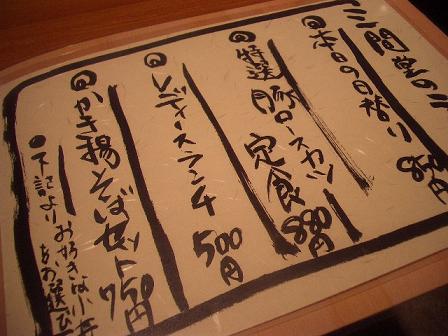 三間堂の
回本日の日替り
回特選豚ロースカツ定食880円
回レディースランチ500円
回かき揚そばセット750円
●下記よりお好きな小丼
をお選び